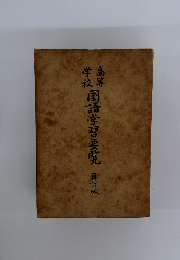 高等
学校
国語学習要覧